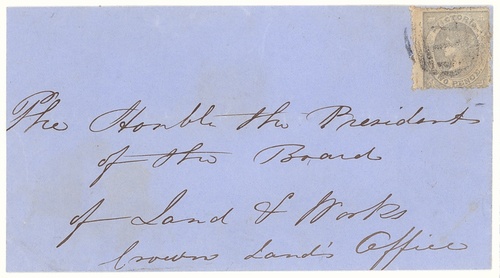 VICTORIA
TWO PENCE
The Honble the President
of the Board
of Land & Works
Crown Land's Office